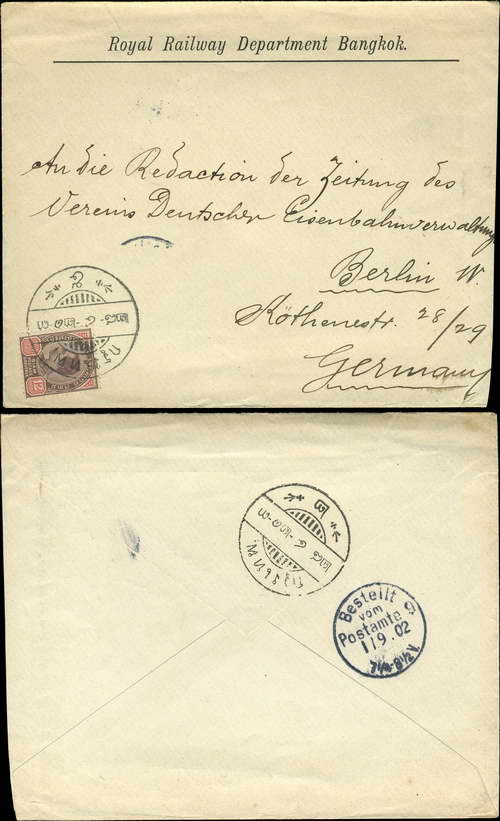 Royal Railway Department Bangkok.
An die Redaction der Zeitung des
Vereins Deutscher Eisenbahnverwaltung
Berlin W.
Köthenestr. 28/29
Germany
Bestellt
vom
Postamte 9
1/9.02
7¼-8½V.